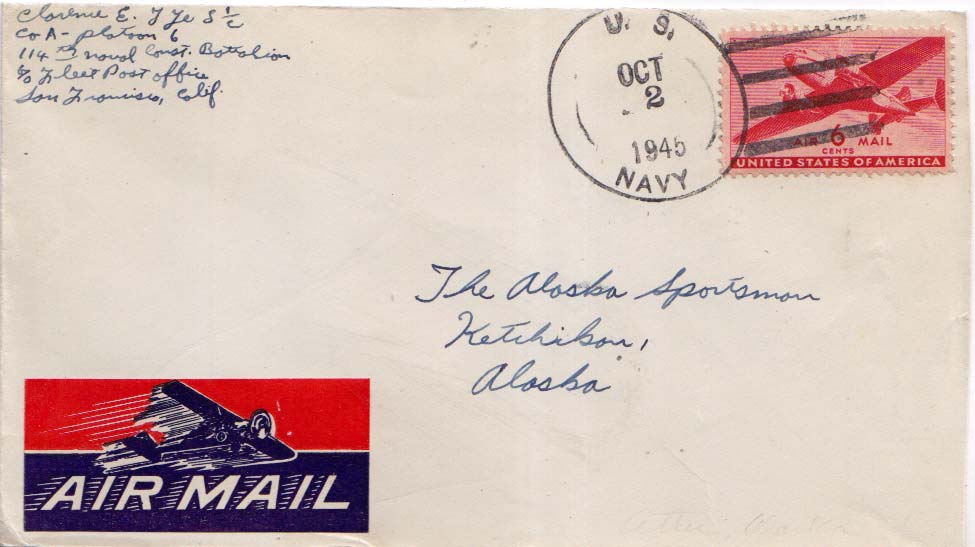 Clarence E. Frye S 1/c
Co A - platoon 6
114th naval Const. Battalion
c/o Fleet Post office
San Francisco, Calif.
U. S.
OCT
2
1945
NAVY
AIR 6 MAIL
CENTS
UNITED STATES OF AMERICA
The Alaska Sportsman
Ketchikan,
Alaska
AIR MAIL